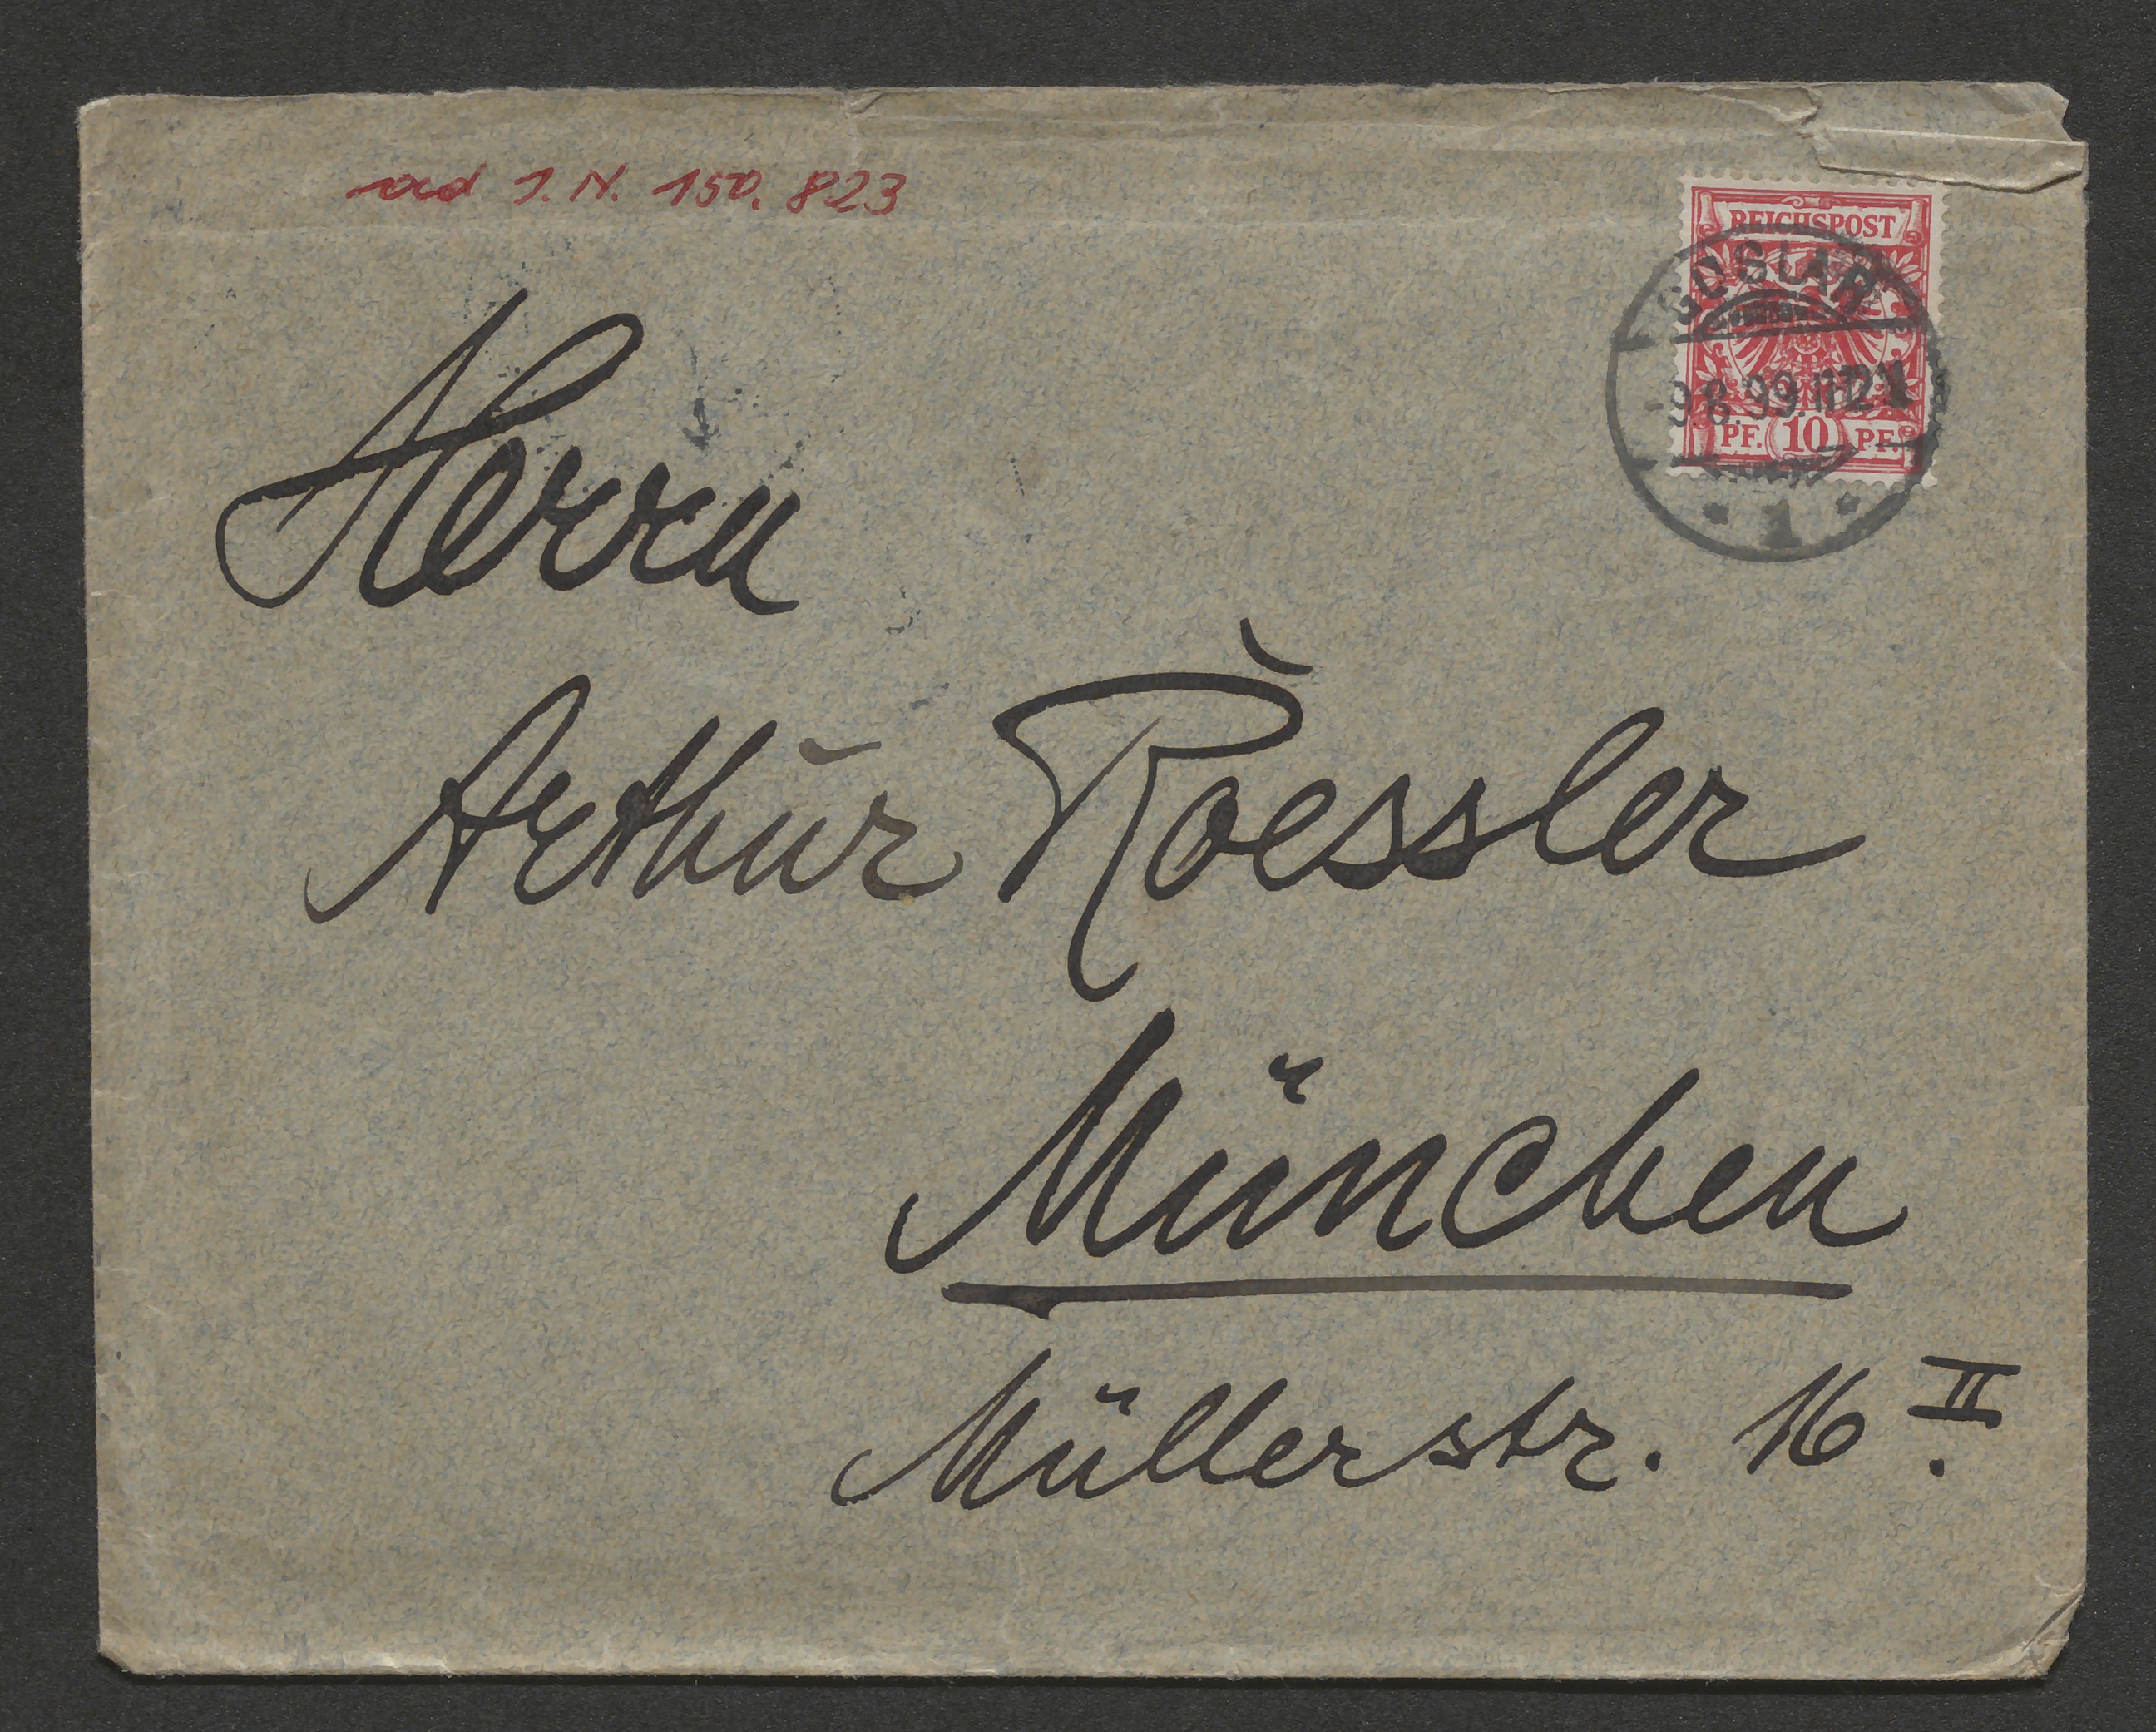 ad I.N. 150.823
REICHSPOST
GOSLAR
-9.8.99.11-12V.
PF. 10 PF.
* 1 *
Herrn
Arthur Roessler
München
Müllerstr. 16 II.